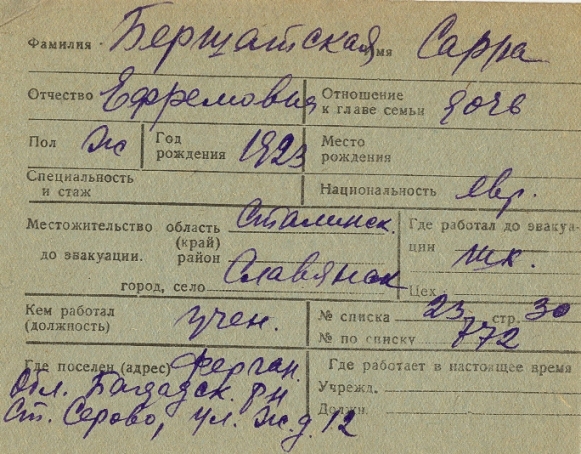 Фамилия Бершатская Имя Сарра
Отчество Ефремовна Отношение к главе семьи дочь
Пол Ж Год рождения 1923 Место рождения
Специальность и стаж Национальность евр.
Местожительство до эвакуации. область (край) Сталинск. Где работал до эвакуации шк.
район
город, село Славянск Цех
Кем работал (должность) учен. № списка 23 стр. 30
№ по списку 772
Где поселен (адрес) Ферган. Где работает в настоящее время
Обл. Багдадск. рн Учрежд.
Ст. Серово, ул. Ж.д. 12 Должн.